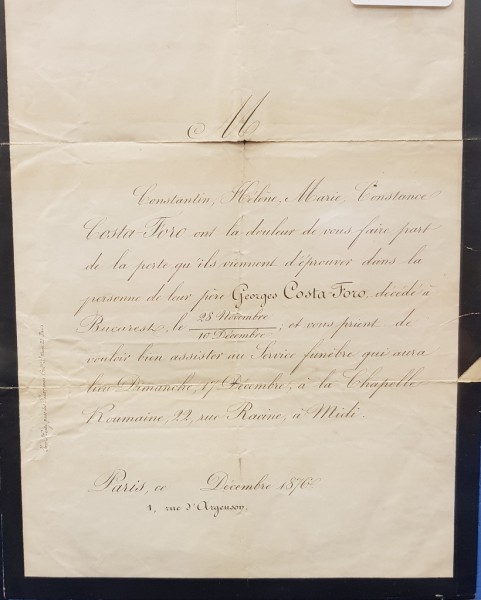 M
Constantin, Hélène, Marie, Constance
Costa-Foro ont la douleur de vous faire part
de la perte qu'ils viennent d'éprouver dans la
personne de leur père Georges Costa-Foro, décédé à
Bucarest, le 28 Novembre
10 Décembre, et vous prient de
vouloir bien assister au Service funèbre qui aura
lieu Dimanche, 17 Décembre, à la Chapelle
Roumaine, 22, rue Racine, à Midi.
Paris, ce Décembre 1876.
1, rue d'Argenson.